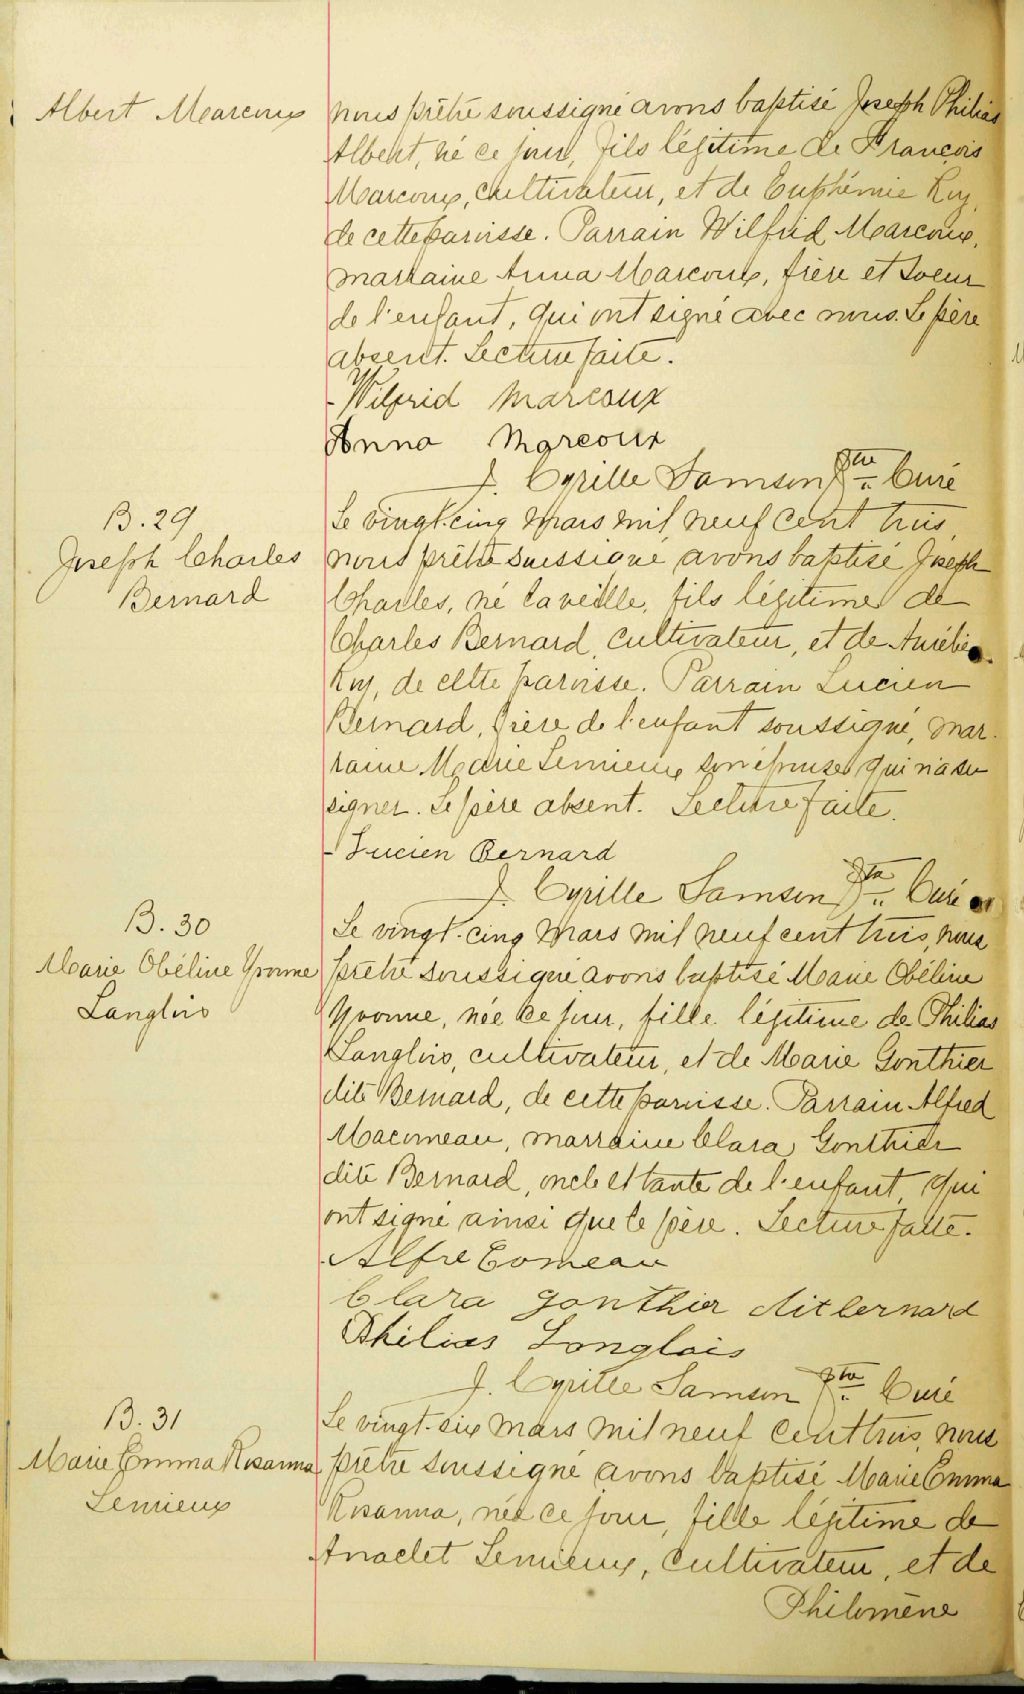 Albert Marcoux
nous prêtre soussigné avons baptisé Joseph Philias
Albert, né ce jour, fils légitime de François
Marcoux, cultivateur, et de Euphémie Roy,
de cette paroisse. Parrain Wilfrid Marcoux,
marraine Anna Marcoux, frère et soeur
de l'enfant, qui ont signé avec nous. Le père
absent. Lecture faite.
- Wilfrid Marcoux
Anna Marcoux
J. Cyrille Samson Ptre Curé
B. 29
Joseph Charles
Bernard
Le vingt-cinq mars mil neuf cent trois,
nous prêtre soussigné, avons baptisé Joseph
Charles, né la veille, fils légitime de
Charles Bernard, cultivateur, et de Aurélie
Roy, de cette paroisse. Parrain Lucien
Bernard, frère de l'enfant soussigné, mar-
raine Marie Lemieux son épouse qui n'a su
signer. Le père absent. Lecture faite.
- Lucien Bernard
J. Cyrille Samson Ptre Curé
B. 30
Marie Obéline Yvonne
Langlois
Le vingt-cinq mars mil neuf cent trois, nous
prêtre soussigné avons baptisé Marie Obéline
Yvonne, née ce jour, fille légitime de Philias
Langlois, cultivateur, et de Marie Gonthier
dite Bernard, de cette paroisse. Parrain Alfred
Macomeau, marraine Clara Gonthier
dite Bernard, oncle et tante de l'enfant, qui
ont signé ainsi que le père. Lecture faite.
Alfre Comeau
Clara gonthier dit bernard
Philias Langlais
J. Cyrille Samson Ptre Curé
B. 31
Marie Emma Rosanna
Lemieux
Le vingt-six mars mil neuf cent trois, nous
prêtre soussigné avons baptisé Marie Emma
Rosanna, née ce jour, fille légitime de
Anaclet Lemieux, cultivateur, et de
Philomène